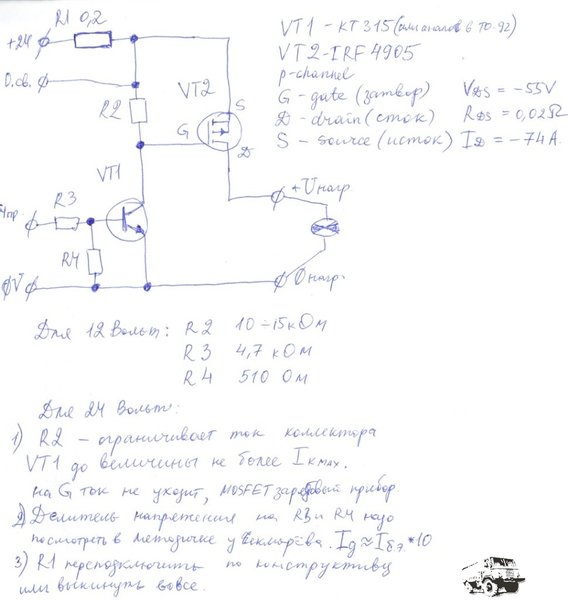 R1 0,2
+24
О.св.
R2
VT2
S
G
D
VT1
R3
R4
Упр
0V
+Uнагр
0нагр.
VT1 - КТ315 (или аналог в ТО-92)
VT2 - IRF4905
p-channel
G - gate (затвор)
D - drain (сток)
S - source (исток)
VDS = -55V
RDS = 0,02Ω
ID = -74A.
Для 12 Вольт: R2 10÷15 кОм
R3 4,7 кОм
R4 510 Ом
Для 24 Вольт:
1) R2 - ограничивает ток коллектора
VT1 до величины не более IK MAX.
на G ток не уходит, MOSFET зарядовый прибор
2) Делитель напряжения на R3 и R4 надо
посмотреть в методичке у Бокмарёва. Iд≈Iбэ*10
3) R1 переподключить по конструктиву
или выкинуть вовсе.